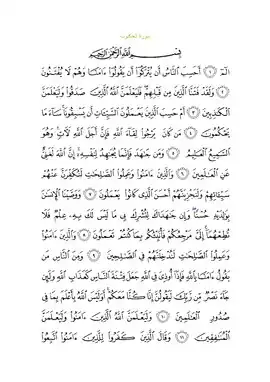 سورة عنكبوت
بِسْمِ ٱللَّهِ ٱلرَّحْمَـٰنِ ٱلرَّحِيمِ
الٓمٓ ١ أَحَسِبَ ٱلنَّاسُ أَن يُتْرَكُوٓا۟ أَن يَقُولُوٓا۟ ءَامَنَّا وَهُمْ لَا يُفْتَنُونَ
٢ وَلَقَدْ فَتَنَّا ٱلَّذِينَ مِن قَبْلِهِمْ فَلَيَعْلَمَنَّ ٱللَّهُ ٱلَّذِينَ صَدَقُوا۟ وَلَيَعْلَمَنَّ
ٱلْكَـٰذِبِينَ ٣ أَمْ حَسِبَ ٱلَّذِينَ يَعْمَلُونَ ٱلسَّيِّـَٔاتِ أَن يَسْبِقُونَا سَآءَ مَا
يَحْكُمُونَ ٤ مَن كَانَ يَرْجُوا۟ لِقَآءَ ٱللَّهِ فَإِنَّ أَجَلَ ٱللَّهِ لَـَٔاتٍ وَهُوَ
ٱلسَّمِيعُ ٱلْعَلِيمُ ٥ وَمَن جَـٰهَدَ فَإِنَّمَا يُجَـٰهِدُ لِنَفْسِهِۦٓ إِنَّ ٱللَّهَ لَغَنِىٌّ
عَنِ ٱلْعَـٰلَمِينَ ٦ وَٱلَّذِينَ ءَامَنُوا۟ وَعَمِلُوا۟ ٱلصَّـٰلِحَـٰتِ لَنُكَفِّرَنَّ عَنْهُمْ
سَيِّـَٔاتِهِمْ وَلَنَجْزِيَنَّهُمْ أَحْسَنَ ٱلَّذِى كَانُوا۟ يَعْمَلُونَ ٧ وَوَصَّيْنَا ٱلْإِنسَـٰنَ
بِوَٰلِدَيْهِ حُسْنًا وَإِن جَـٰهَدَاكَ لِتُشْرِكَ بِى مَا لَيْسَ لَكَ بِهِۦ عِلْمٌ فَلَا
تُطِعْهُمَآ إِلَىَّ مَرْجِعُكُمْ فَأُنَبِّئُكُم بِمَا كُنتُمْ تَعْمَلُونَ ٨ وَٱلَّذِينَ ءَامَنُوا۟
وَعَمِلُوا۟ ٱلصَّـٰلِحَـٰتِ لَنُدْخِلَنَّهُمْ فِى ٱلصَّـٰلِحِينَ ٩ وَمِنَ ٱلنَّاسِ مَن
يَقُولُ ءَامَنَّا بِٱللَّهِ فَإِذَآ أُوذِىَ فِى ٱللَّهِ جَعَلَ فِتْنَةَ ٱلنَّاسِ كَعَذَابِ ٱللَّهِ وَلَئِن
جَآءَ نَصْرٌ مِّن رَّبِّكَ لَيَقُولُنَّ إِنَّا كُنَّا مَعَكُمْ أَوَلَيْسَ ٱللَّهُ بِأَعْلَمَ بِمَا فِى
صُدُورِ ٱلْعَـٰلَمِينَ ١٠ وَلَيَعْلَمَنَّ ٱللَّهُ ٱلَّذِينَ ءَامَنُوا۟ وَلَيَعْلَمَنَّ
ٱلْمُنَـٰفِقِينَ ١١ وَقَالَ ٱلَّذِينَ كَفَرُوا۟ لِلَّذِينَ ءَامَنُوا۟ ٱتَّبِعُوا۟